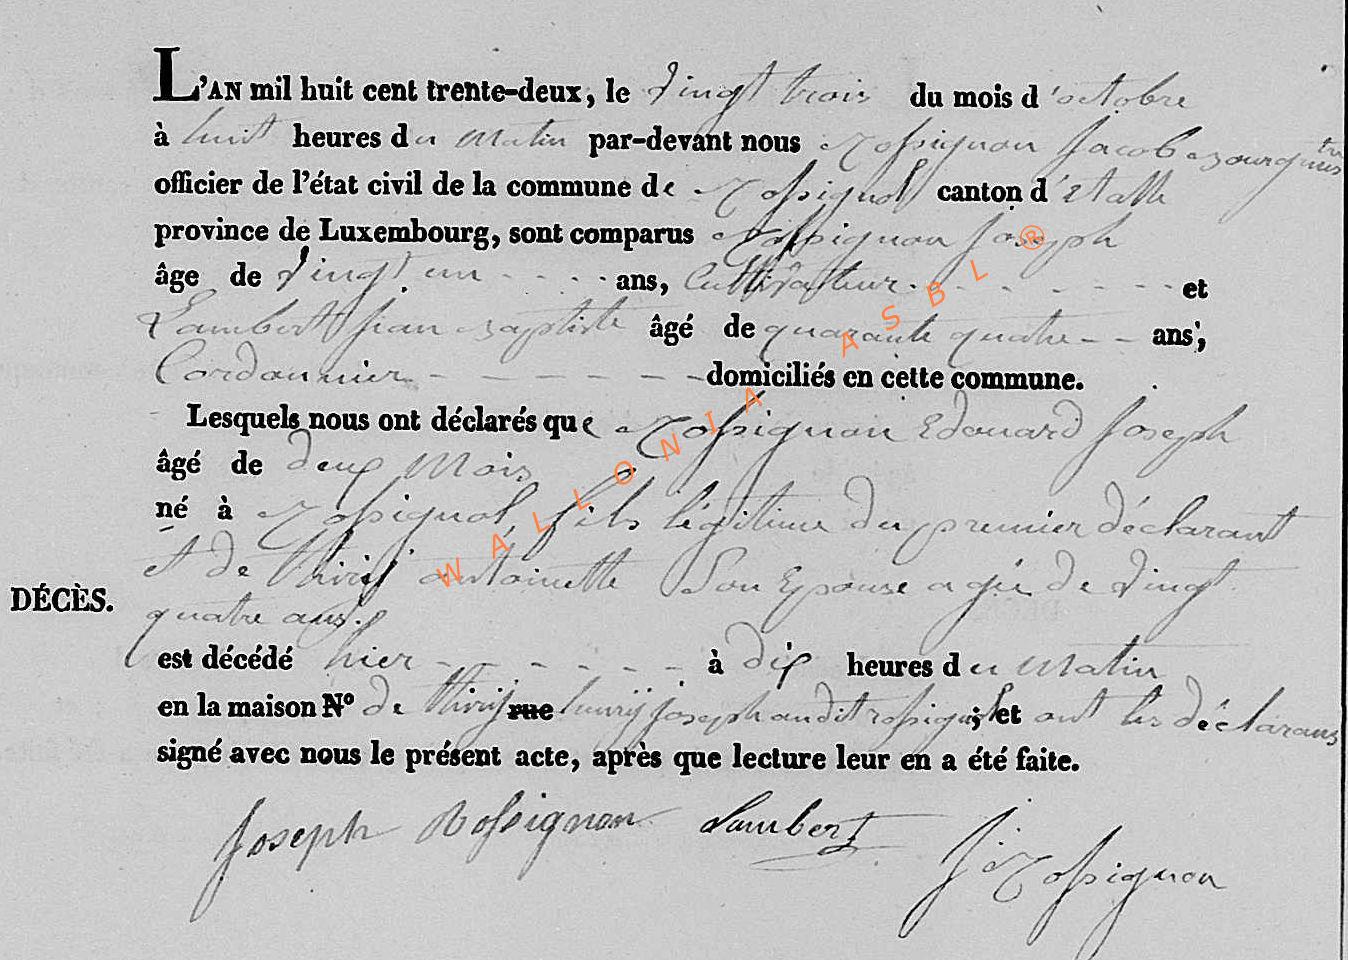 L'AN mil huit cent trente-deux, le vingt trois du mois d'octobre
à huit heures du Matin par-devant nous Rossignon Jacob bourgmestre
officier de l'état civil de la commune de Rossignol canton d'étalle
province de Luxembourg, sont comparus Rossignon Joseph
âge de vingt un ans, Cultivateur et
Lambert jean Baptiste âgé de quarante quatre ans,
Cordonnier domiciliés en cette commune.
Lesquels nous ont déclarés que Rossignon Edouard Joseph
âgé de deux Mois
né à Rossignol, fils légitime du premier déclarant
et de thiry antoinette Son Epouse agée de vingt
quatre ans.
DÉCÈS.
est décédé hier à dix heures du Matin
en la maison N° de thiry rue henry joseph audit rossignol; et ont les déclarans
signé avec nous le présent acte, après que lecture leur en a été faite.
Joseph Rossignon Lambert J. Rossignon
WALLONIA ASBL ®